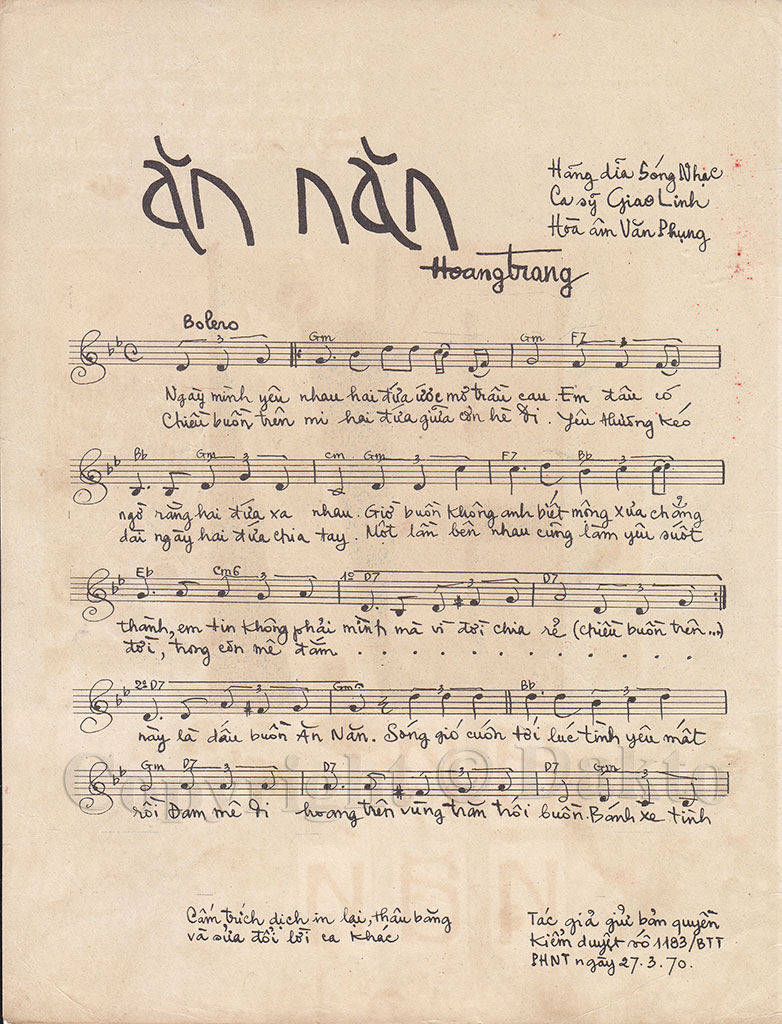 ăn năn
Hãng dĩa Sóng Nhạc
Ca sỹ Giao Linh
Hòa âm Văn Phụng
Hoangtrang
Bolero
3 Gm Gm F7 3
Ngày mình yêu nhau hai đứa ước mơ trầu cau. Em đâu có
Chiều buồn trên mi hai đứa giữa cơn hè đi. Yêu thương kéo
Bb Gm 3 Cm Gm 3 F7 Bb 3
ngờ rằng hai đứa xa nhau. Giờ buồn không anh biết mộng xưa chẳng
dài ngày hai đứa chia tay. Một lần bên nhau cũng làm yêu suốt
Eb Cm6 3 1º D7 3 D7
thành, em tin không phải mình mà vì đời chia rẻ (chiều buồn trên...)
đời, trong cơn mê đắm . . . . . . . . . .
2º D7 3 Gm 3 Bb 3
này là dấu buồn Ăn Năn. Sóng gió cuốn tới lúc tình yêu mất
Gm D7 3 D7 3 D7 Gm 3
rồi Đam mê đi hoang trên vùng trăn trối buồn. Bánh xe tình
Copyright © Dakto
Cấm trích dịch in lại, thâu băng
và sửa đổi lời ca khác
Tác giả giữ bản quyền
Kiểm duyệt số 1183/BTT
PHNT ngày 27.3.70.